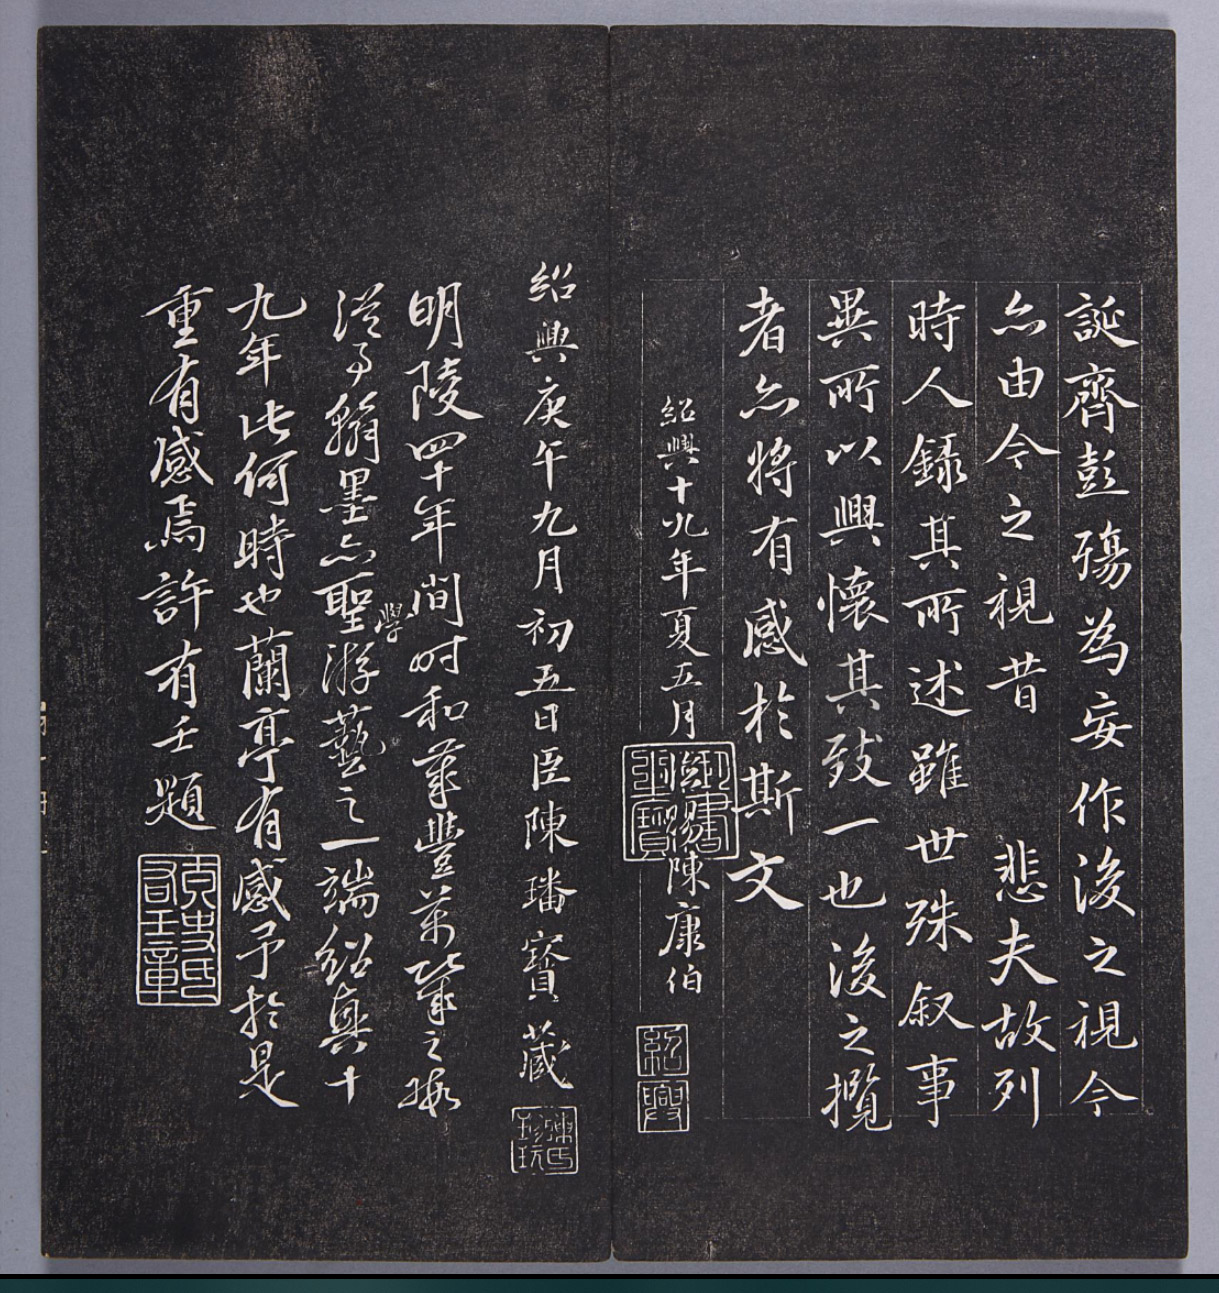 誕齊彭殤為妄作後之視今
亦由今之視昔 悲夫故列
時人錄其所述雖世殊叙事
異所以興懷其致一也後之攬
者亦將有感於斯文
紹興十九年夏五月 賜陳康伯
紹興
紹興庚午九月初五日臣陳璠寶藏
陳氏珍玩
明陵四十年間時和歲豐萬幾之暇
從事翰墨亦聖學游藝之一端紹興十
九年此何時也蘭亭有感予於是
重有感焉許有壬題